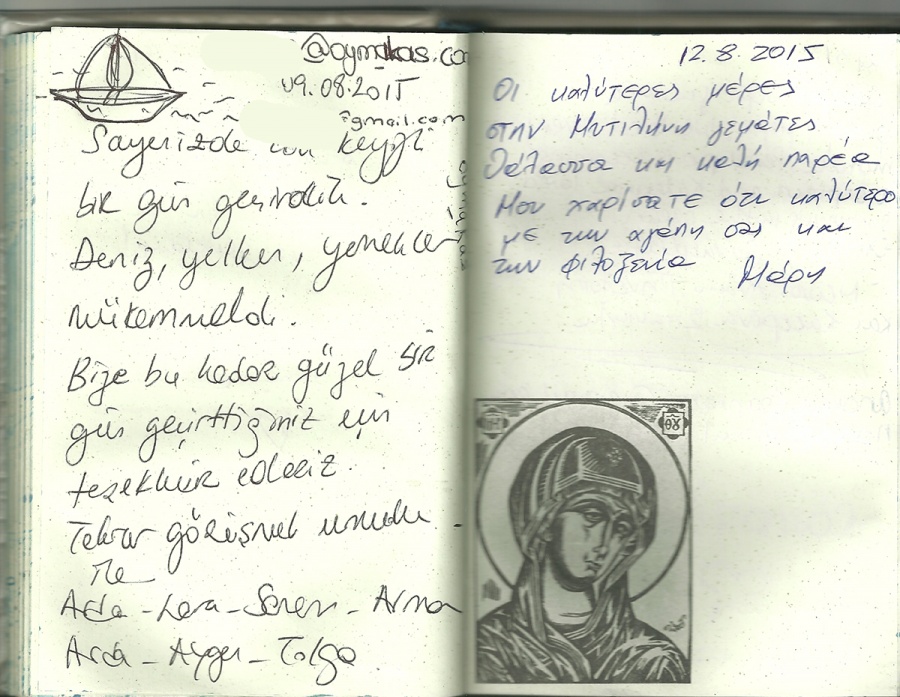 @oymakas.co
09.08.2015
@gmail.com
Sayenizde keyifli
bir gün geçirdik.
Deniz, yelken, yemekler
mükemmeldi.
Bize bu kadar güzel bir
gün geçirttiğiniz için
teşekkür ederiz.
Tekrar görüşmek umudu
- Arda - Seren -
Arda - Tolga
12.8.2015
Οι καλύτερες μέρες
στην Μυτιλήνη γεμάτες
θάλασσα και καλή παρέα
Μου χαρίσατε ότι καλύτερο
με την αγάπη σας και
την φιλοξενία
Μάρη
ΜΡ
ΘΥ